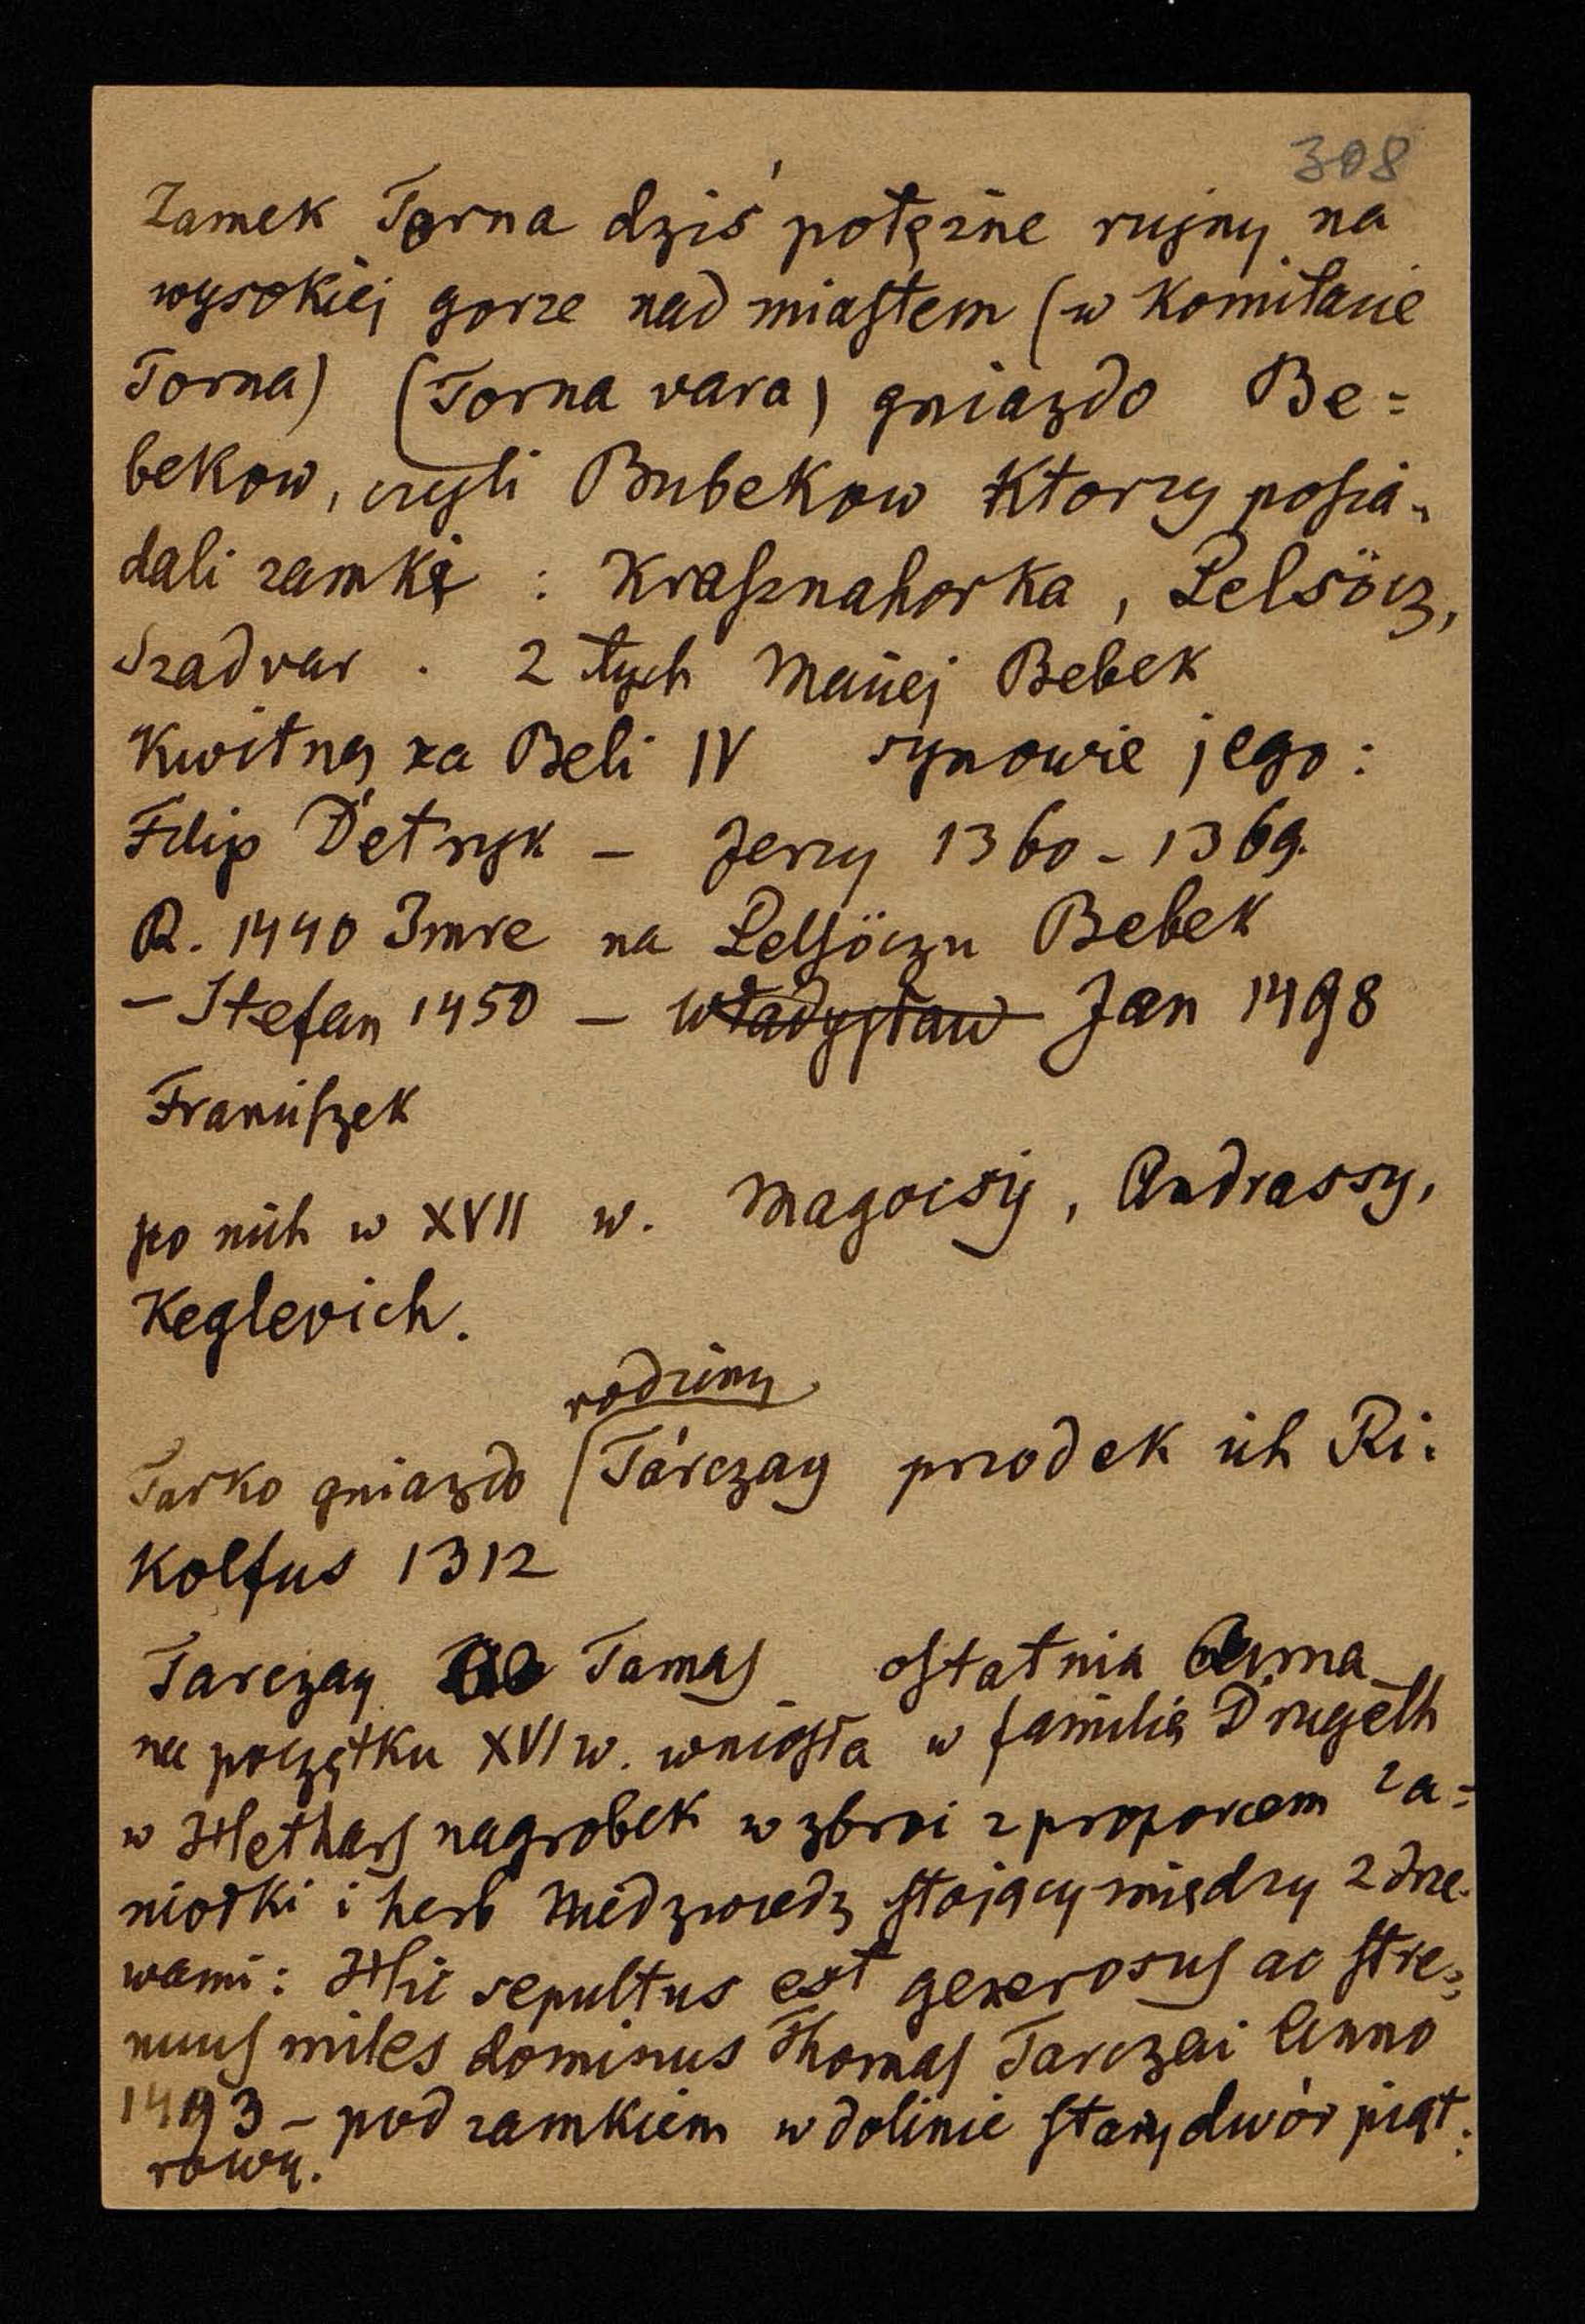 308
Zamek Torna dziś potężne rujny na
wysokiej gorze nad miastem (w Komitacie
Torna) (Torna vara) gniazdo Be=
bekow, czyli Bubekow Ktorzy posia-
dali zamki : Krasznahorka, Pelsöcz,
Szadvar. Z tych Maciej Bebek
Kwitną za Beli IV synowie jego :
Filip Detryk – Jerzy 1360 - 1369.
R. 1440 Imre na Pelsöczu Bebek
– Stefan 1450 – Władysław Jan 1498
Franciszek
po nich w XVII w. Magocsij, Andrassy,
Keglevich.
rodziny
Tarko gniazdo Tárczay przodek ich Ri-
kolfus 1312
Tarczay Tamas ostatnia Anna
na początku XVI w. wniosła w familię Drugeth
w Hethars nagrobek w zbroi z proporcem za=
niotki i herb Niedzwiedz stojący między 2 drze-
wami : Hic sepultus est generosus ac stre-
nuus miles dominus Thomas Tarczai Anno
1493 – pod zamkiem w dolinie stary dwór piąt-
rowy.